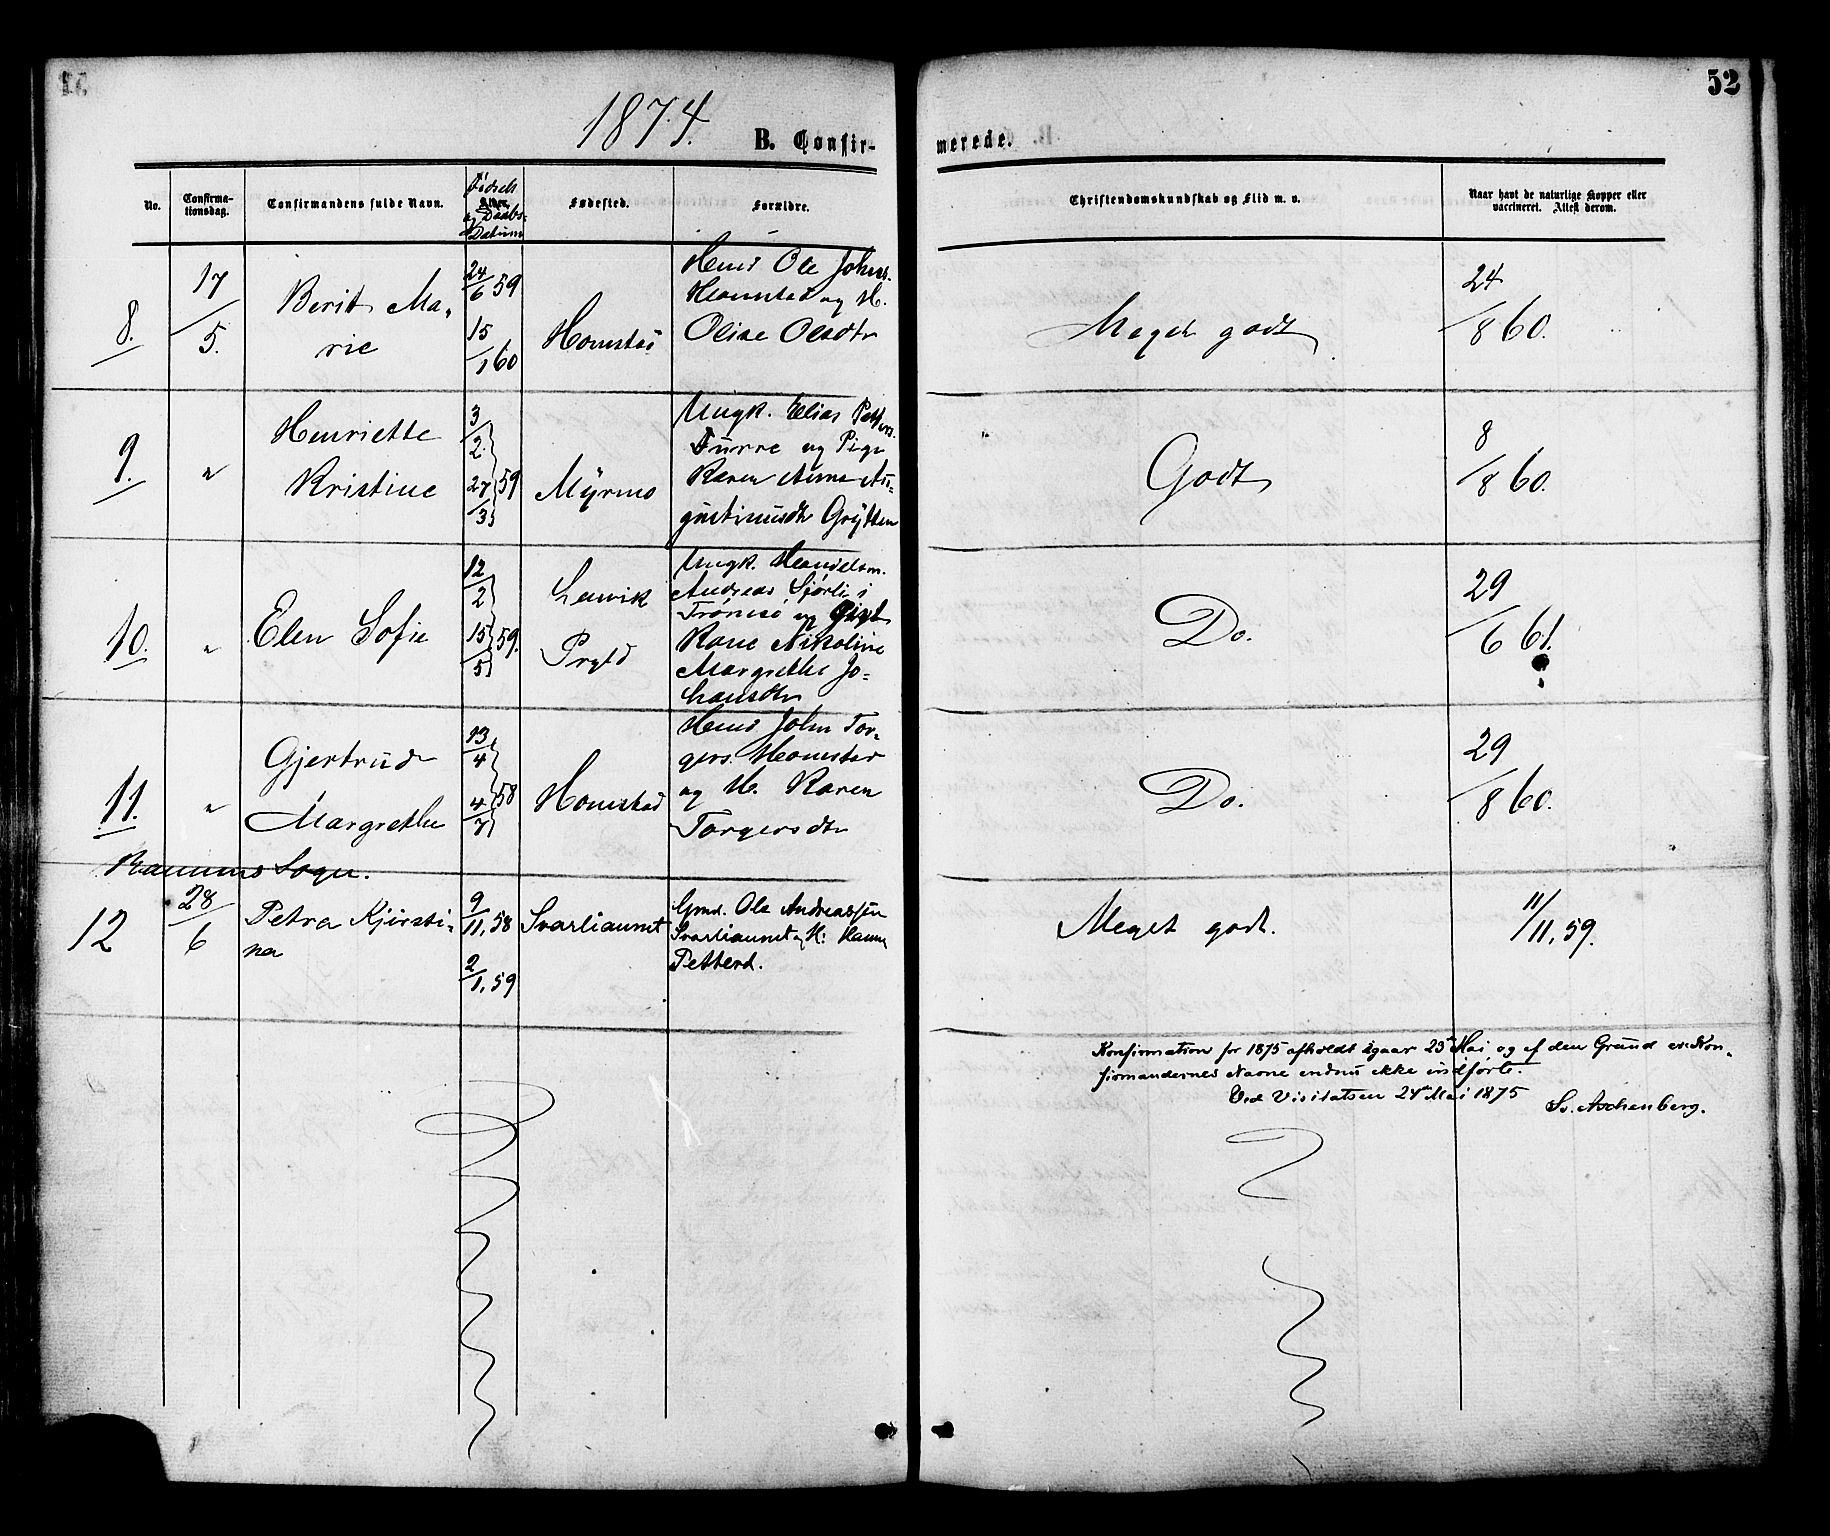 52
1874.
B. Confir-
merede.
No.
Confirma-
tionsdag.
Confirmandens fulde Navn.
Fødsels
Alder.
og Daabs-
Datum
Fødested.
Forældre.
Christendomskundskab og Flid m. v.
Naar havt de naturlige Kopper eller
vaccineret. Attest derom.
8.
17/5.
Berit Ma-
rie
24/6 59
15/1 60
Homstad
Huus Ole Johns.
Homstad og H.
Olise Olsdtr
Meget godt
24/8 60.
9.
"
Henriette
Kristine
3/2
27/3 59
Myrmo
Ungk. Elias Petters.
Furre og Pige
Karen Anna Au-
gustinusdtr Grytten
Godt
8/8 60.
10.
"
Elen Sofie
12/2
15/5 59.
Leervik
Ungk. Handelsm.
Andreas Sjørli i
Tromsø og Pige
Kane Nikoline
Margrethe Jo-
hansdtr
Do.
29/6 61.
11.
"
Gjertrud
Margrethe
13/4
4/7 58
Homstad
Huus John Tor-
gers. Homstad
og H. Karen
Torgersdtr
Do.
29/8 60.
Ranums Sogn.
12
28/6
Petra Kjirsti-
na
9/11, 58
2/1, 59
Svarliaunet
Gmd. Ole Andreassen
Svarliaunet og H: Hanna
Petterd.
Meget godt.
11/11, 59.
Konfirmation for 1875 afholdt igaar 23de Mai, og af den Grund er Kon-
firmandernes Navne endnu ikke indførte.
Ved Visitatsen 24de Mai 1875
Sv. Aschenberg.